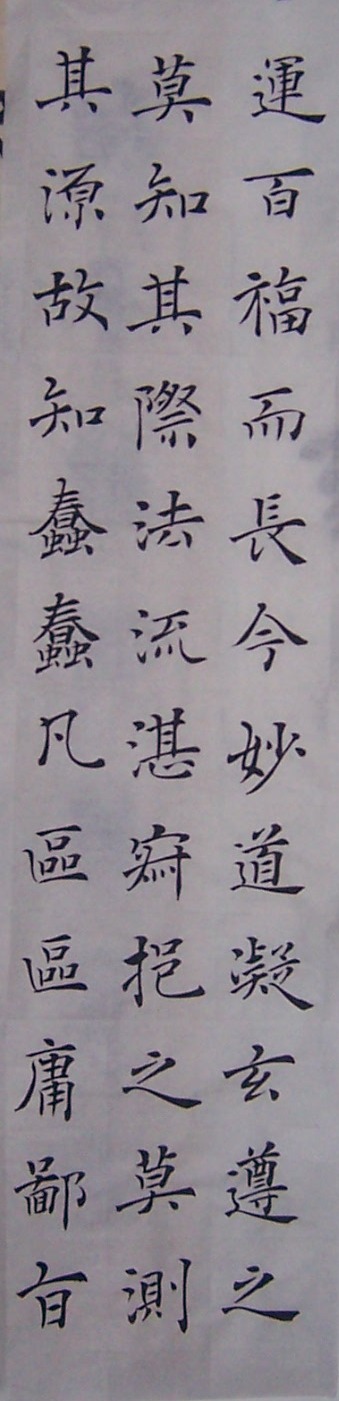 運百福而長今妙道凝玄遵之
莫知其際法流湛寂挹之莫測
其源故知蠢蠢凡區區庸鄙旨